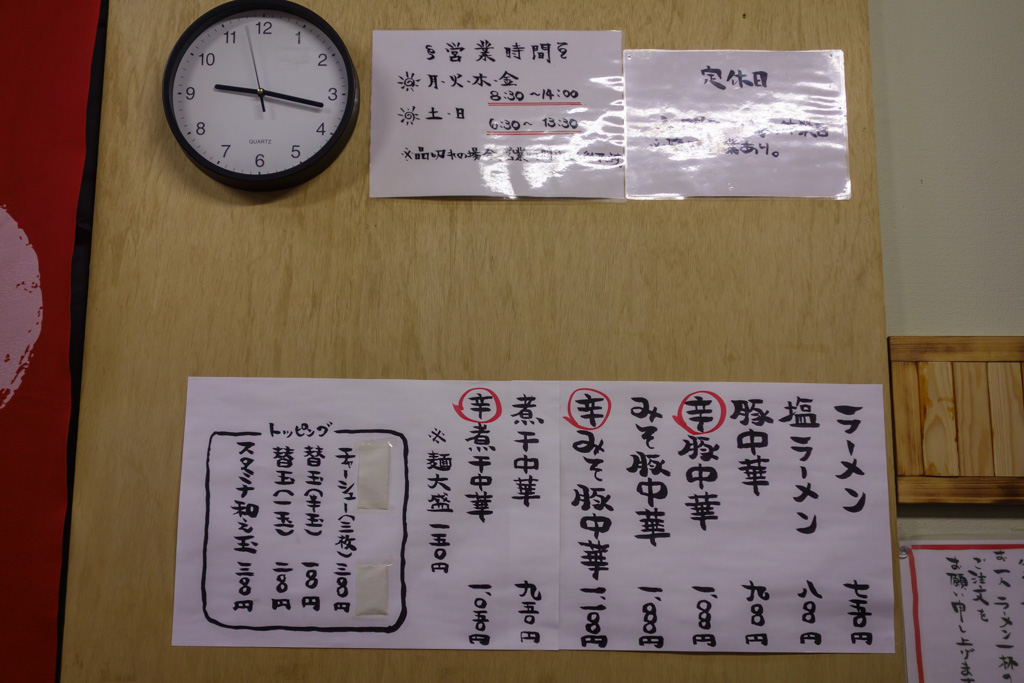 12
1
2
3
4
5
6
7
8
9
10
11
QUARTZ
営業時間
月・火・木・金
8:30～14:00
土・日
6:30～13:30
※品切れの場合
定休日
業あり。
ラーメン 七五〇円
塩ラーメン 八〇〇円
豚中華 九〇〇円
辛豚中華 一、〇〇〇円
みそ豚中華 一、〇〇〇円
辛みそ豚中華 一、一〇〇円
煮干中華 九五〇円
辛煮干中華 一、〇五〇円
※麺大盛 一五〇円
トッピング
チャーシュー(三枚) 三〇〇円
替玉(半玉) 一〇〇円
替玉(一玉) 二〇〇円
スタミナ和え玉 三〇〇円
お一人ラーメン一杯の
ご注文を
お願い申し上げます